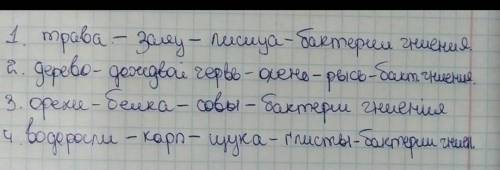 1. трава - заяц - лисица - бактерии гниения
2. дерево - дождвой червь - олень - рысь - бакт гниения.
3. орехи - белка - совы - бактерии гниения
4. водоросли - карп - щука - глисты - бактерии гниен.